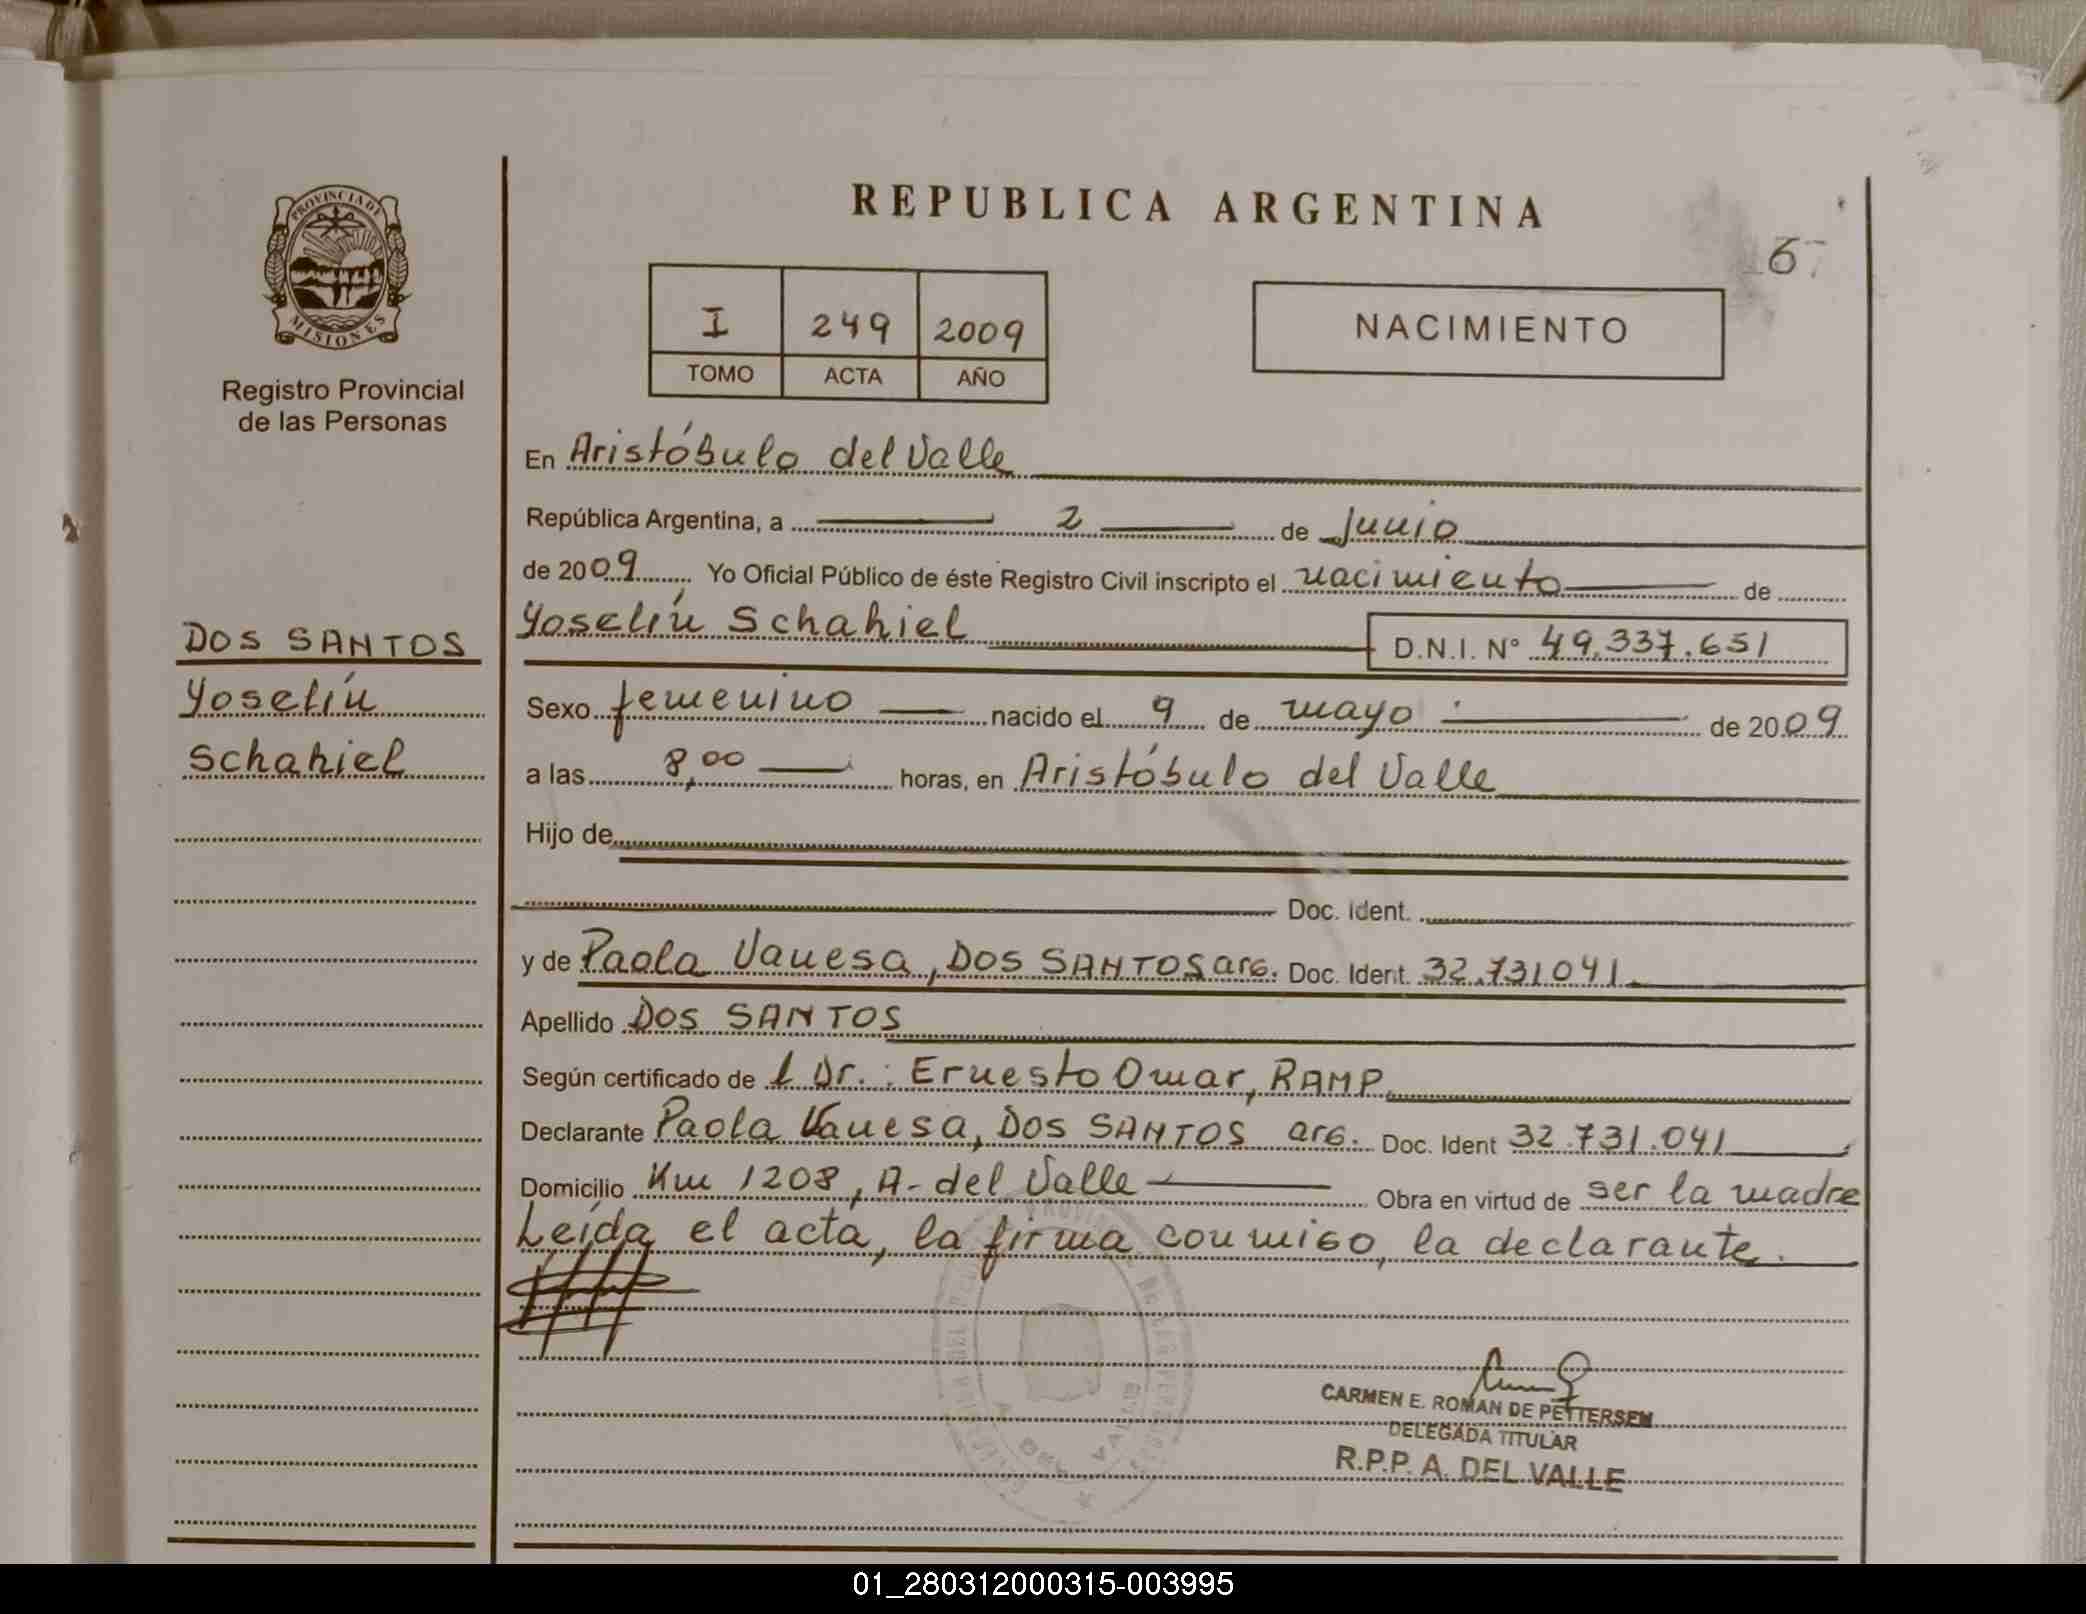 PROVINCIA DE
MISIONES
Registro Provincial
de las Personas
DOS SANTOS
Yoselín
Schahiel
REPUBLICA ARGENTINA
67
I 249 2009
TOMO ACTA AÑO
NACIMIENTO
En Aristóbulo del Valle
República Argentina, a 2 de Junio
de 2009 Yo Oficial Público de éste Registro Civil inscripto el nacimiento de
Yoselín Schahiel D.N.I. N° 49.337.651
Sexo femenino nacido el 9 de mayo de 2009
a las 8,00 horas, en Aristóbulo del Valle
Hijo de
Doc. Ident.
y de Paola Vanesa, DOS SANTOS arg. Doc. Ident. 32.731041
Apellido DOS SANTOS
Según certificado de l Dr.: Ernesto Omar, RAMP
Declarante Paola Vanesa, DOS SANTOS arg. Doc. Ident 32.731.041
Domicilio Km 1208, A- del Valle Obra en virtud de ser la madre
Leída el acta, la firma conmigo, la declarante.
CARMEN E. ROMAN DE PETTERSEN
DELEGADA TITULAR
R.P.P. A. DEL VALLE
01_280312000315-003995